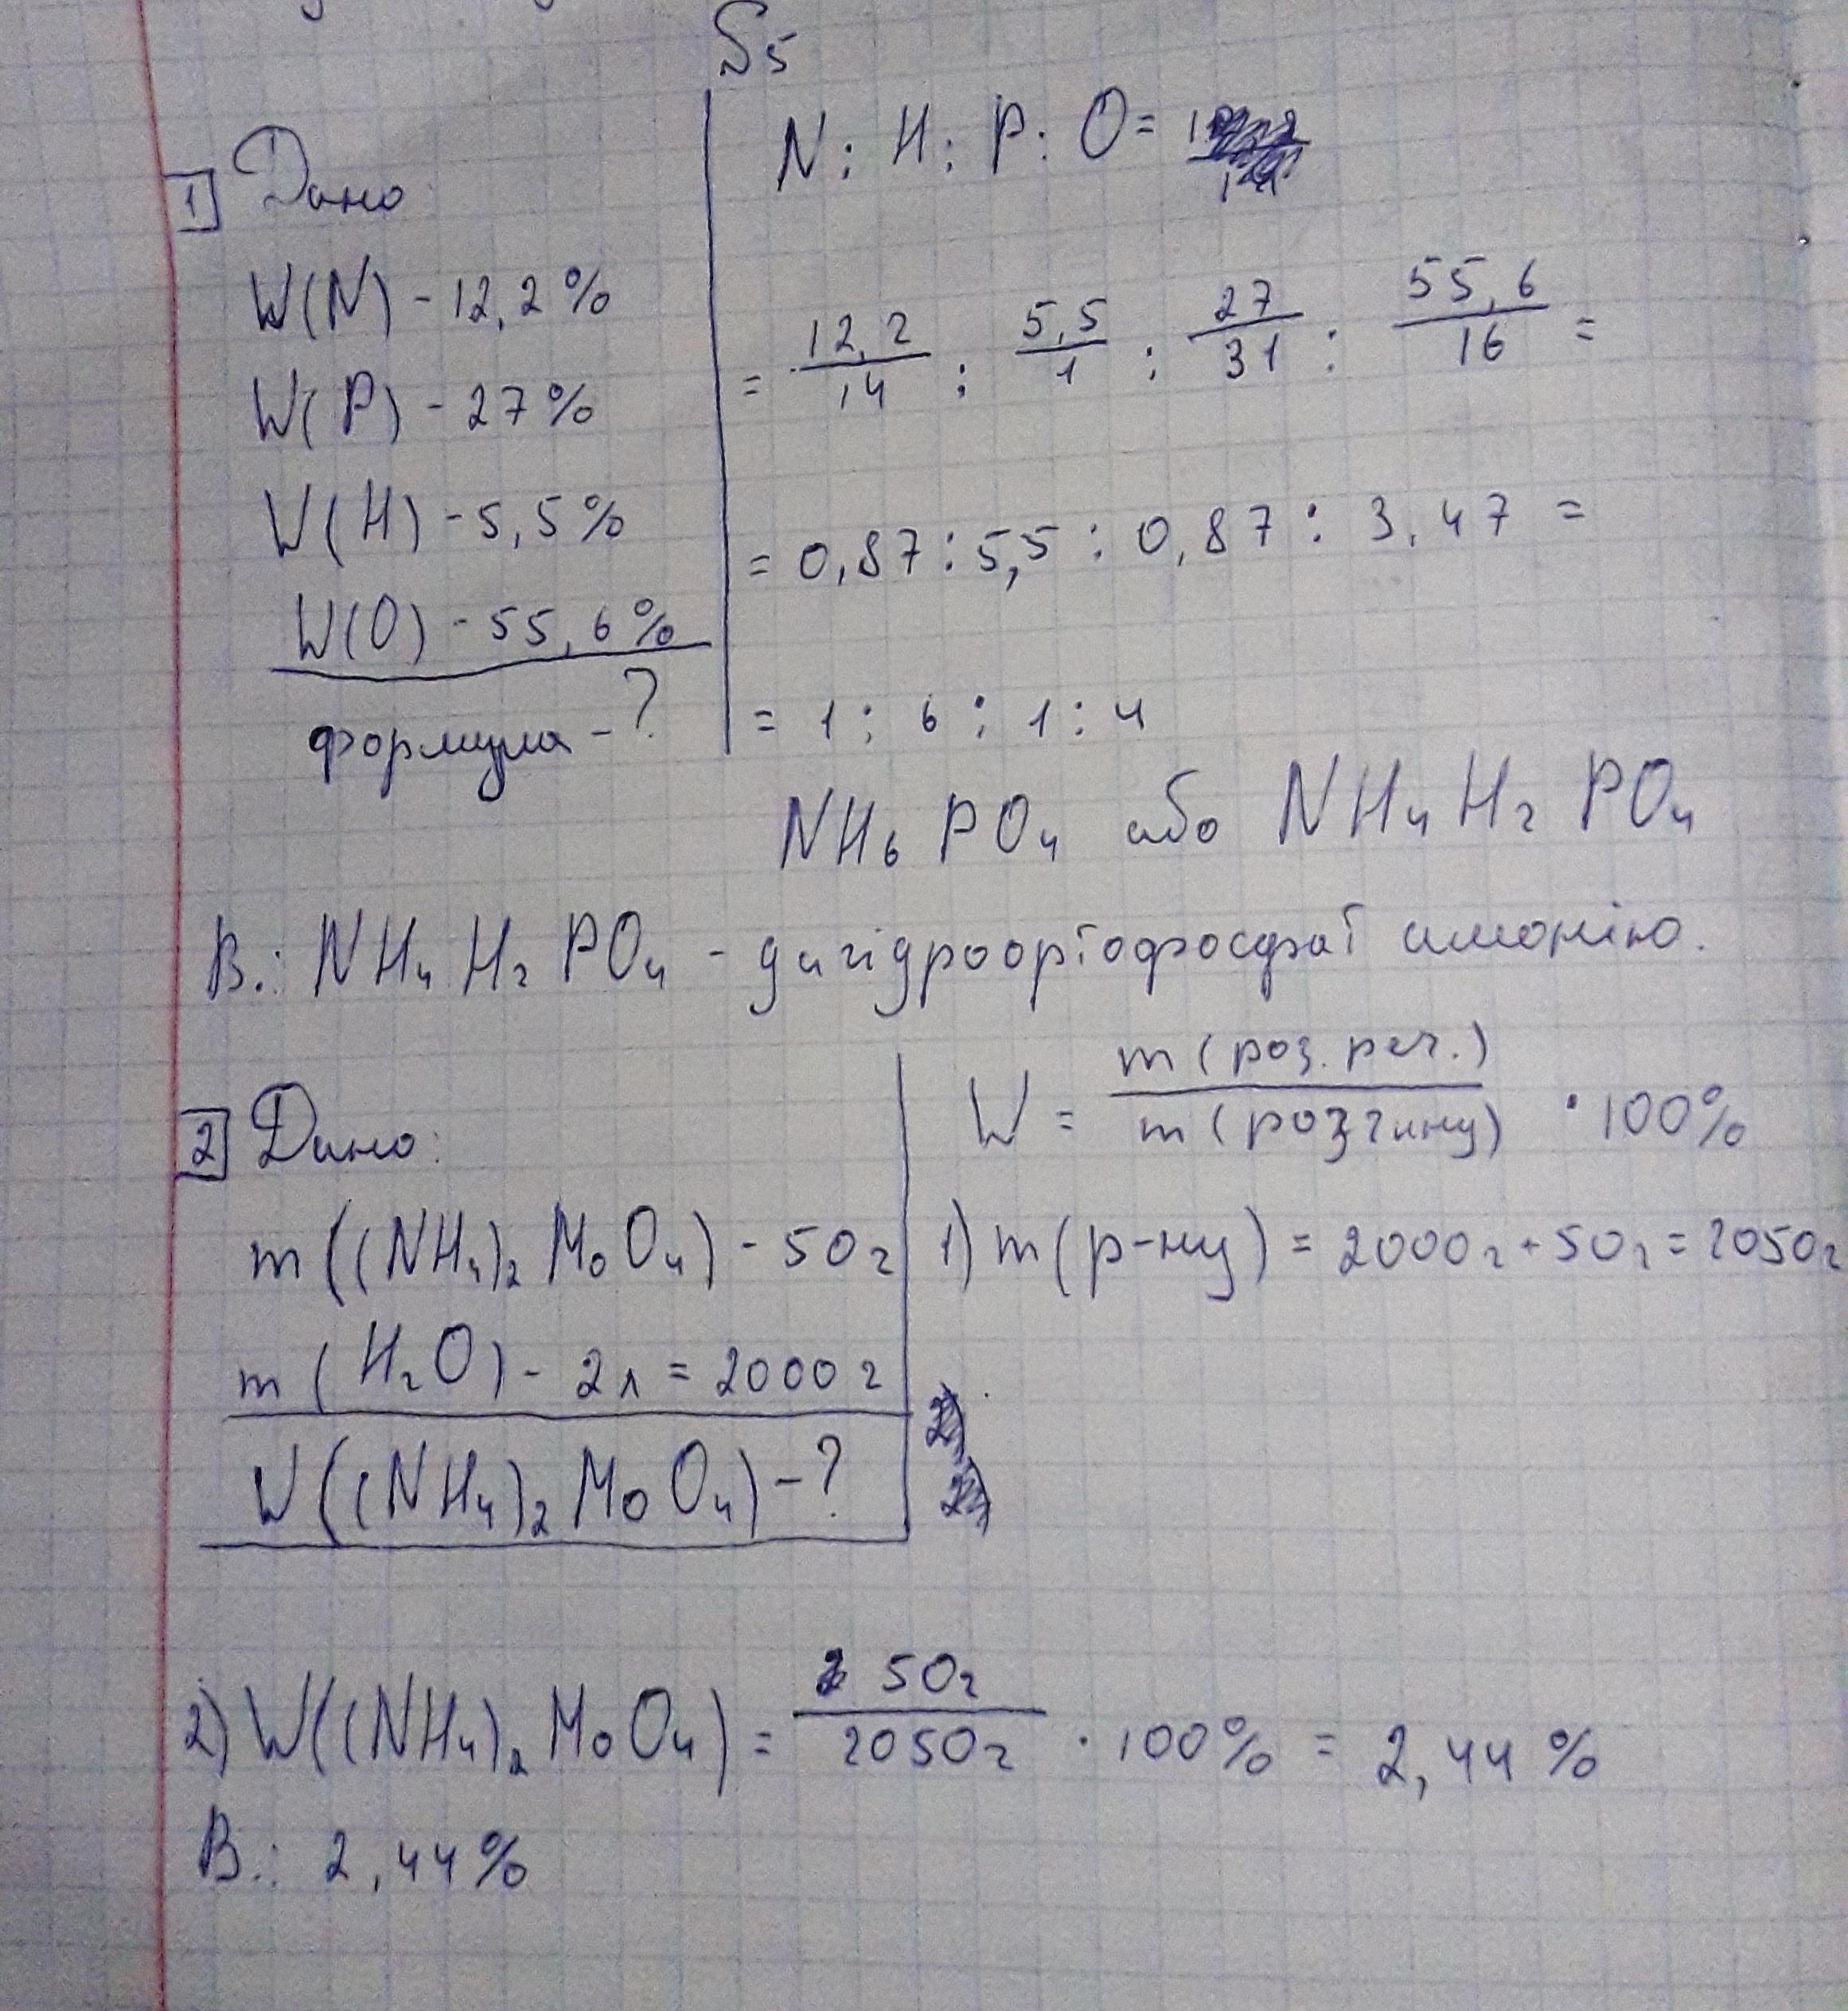 §5
1 Дано
W(N) - 12,2%
W(P) - 27%
W(H) - 5,5%
W(O) - 55,6%
формула - ?
N : H : P : O =
= 12,2/14 : 5,5/1 : 27/31 : 55,6/16 =
= 0,87 : 5,5 : 0,87 : 3,47 =
= 1 : 6 : 1 : 4
NH₆PO₄ або NH₄H₂PO₄
В.: NH₄H₂PO₄ - дигідроортофосфат амонію.
2 Дано:
m((NH₄)₂MoO₄) - 50г
m(H₂O) - 2л = 2000г
W((NH₄)₂MoO₄) - ?
W = m(роз. реч.)/m(розчину) · 100%
1) m(р-ну) = 2000г + 50г = 2050г
2) W((NH₄)₂MoO₄) = 50г/2050г · 100% = 2,44%
В.: 2,44%